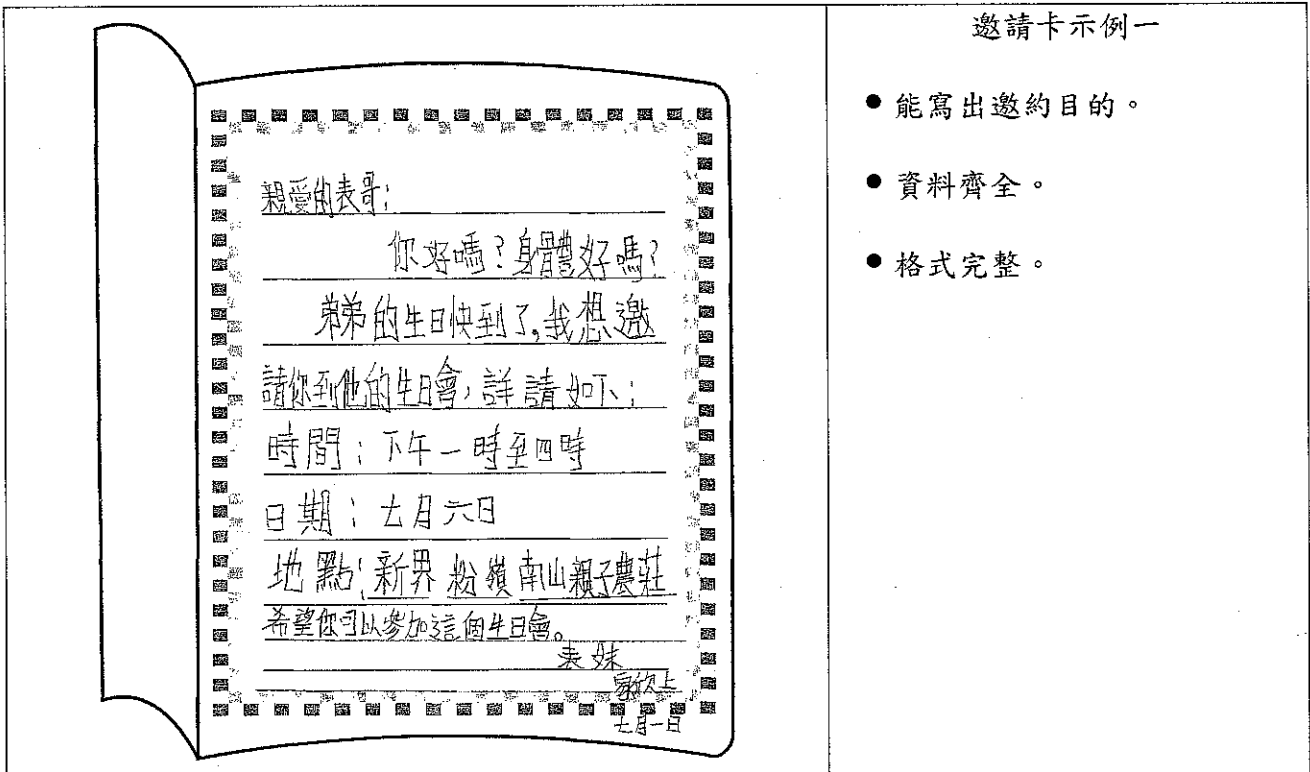 親愛的表哥：
你好嗎？身體好嗎？
弟弟的生日快到了，我想邀
請你到他的生日會，詳請如下：
時間：下午一時至四時
日期：七月六日
地點：新界 粉嶺 南山親子農莊
希望你可以參加這個生日會。
表妹
家欣上
七月一日
邀請卡示例一
● 能寫出邀約目的。
● 資料齊全。
● 格式完整。